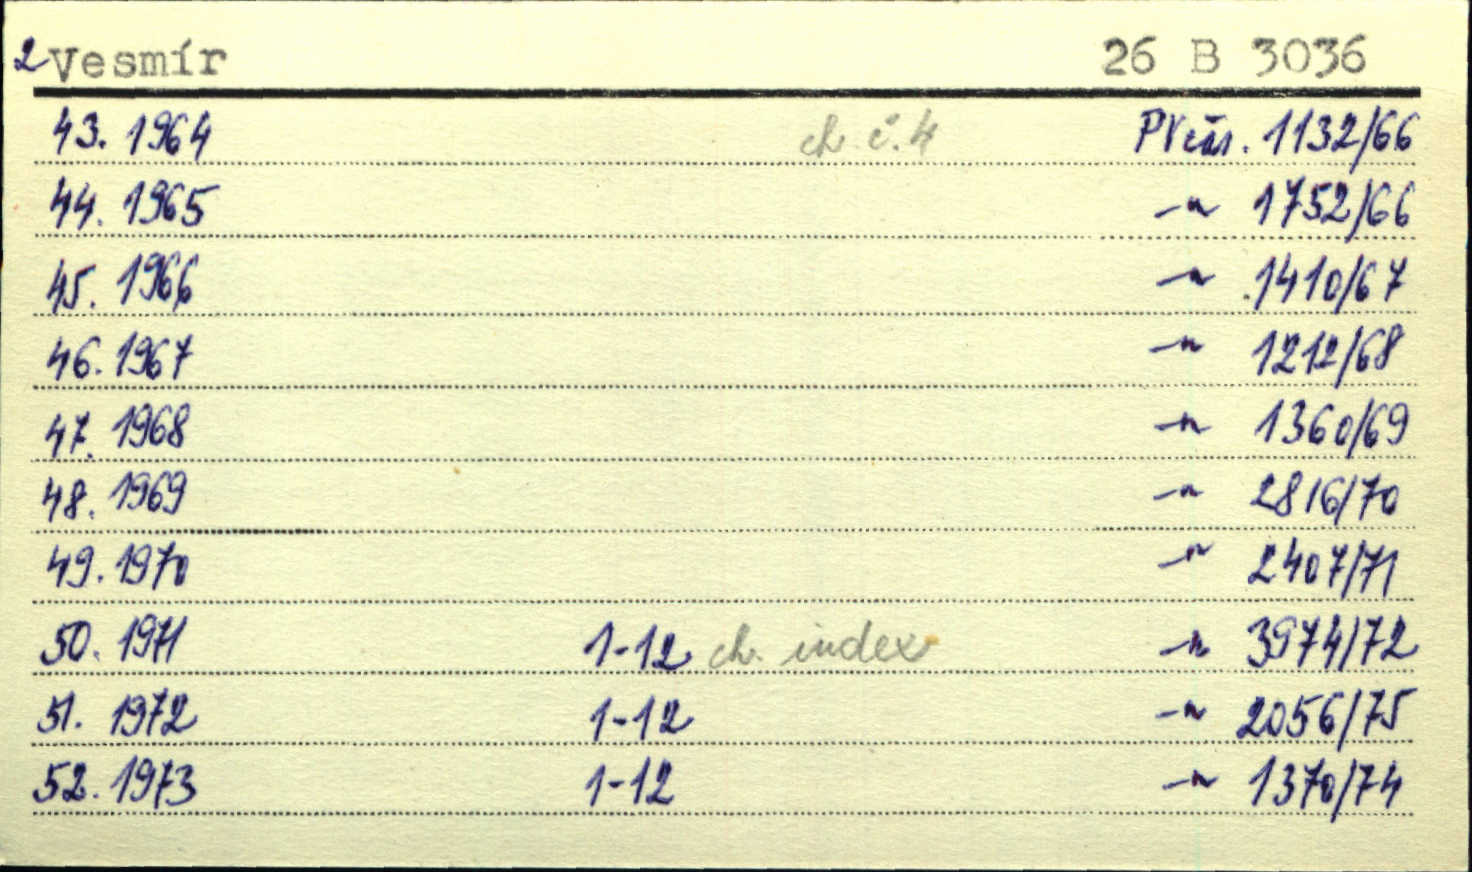 2 Vesmír 26 B 3036
43. 1964 ch. č. 4 PVčás. 1132/66
44. 1965 -"- 1752/66
45. 1966 -"- 1410/67
46. 1967 -"- 1212/68
47. 1968 -"- 1360/69
48. 1969 -"- 2816/70
49. 1970 -"- 2407/71
50. 1971 1-12 ch. index -"- 3974/72
51. 1972 1-12 -"- 2056/75
52. 1973 1-12 -"- 1370/74